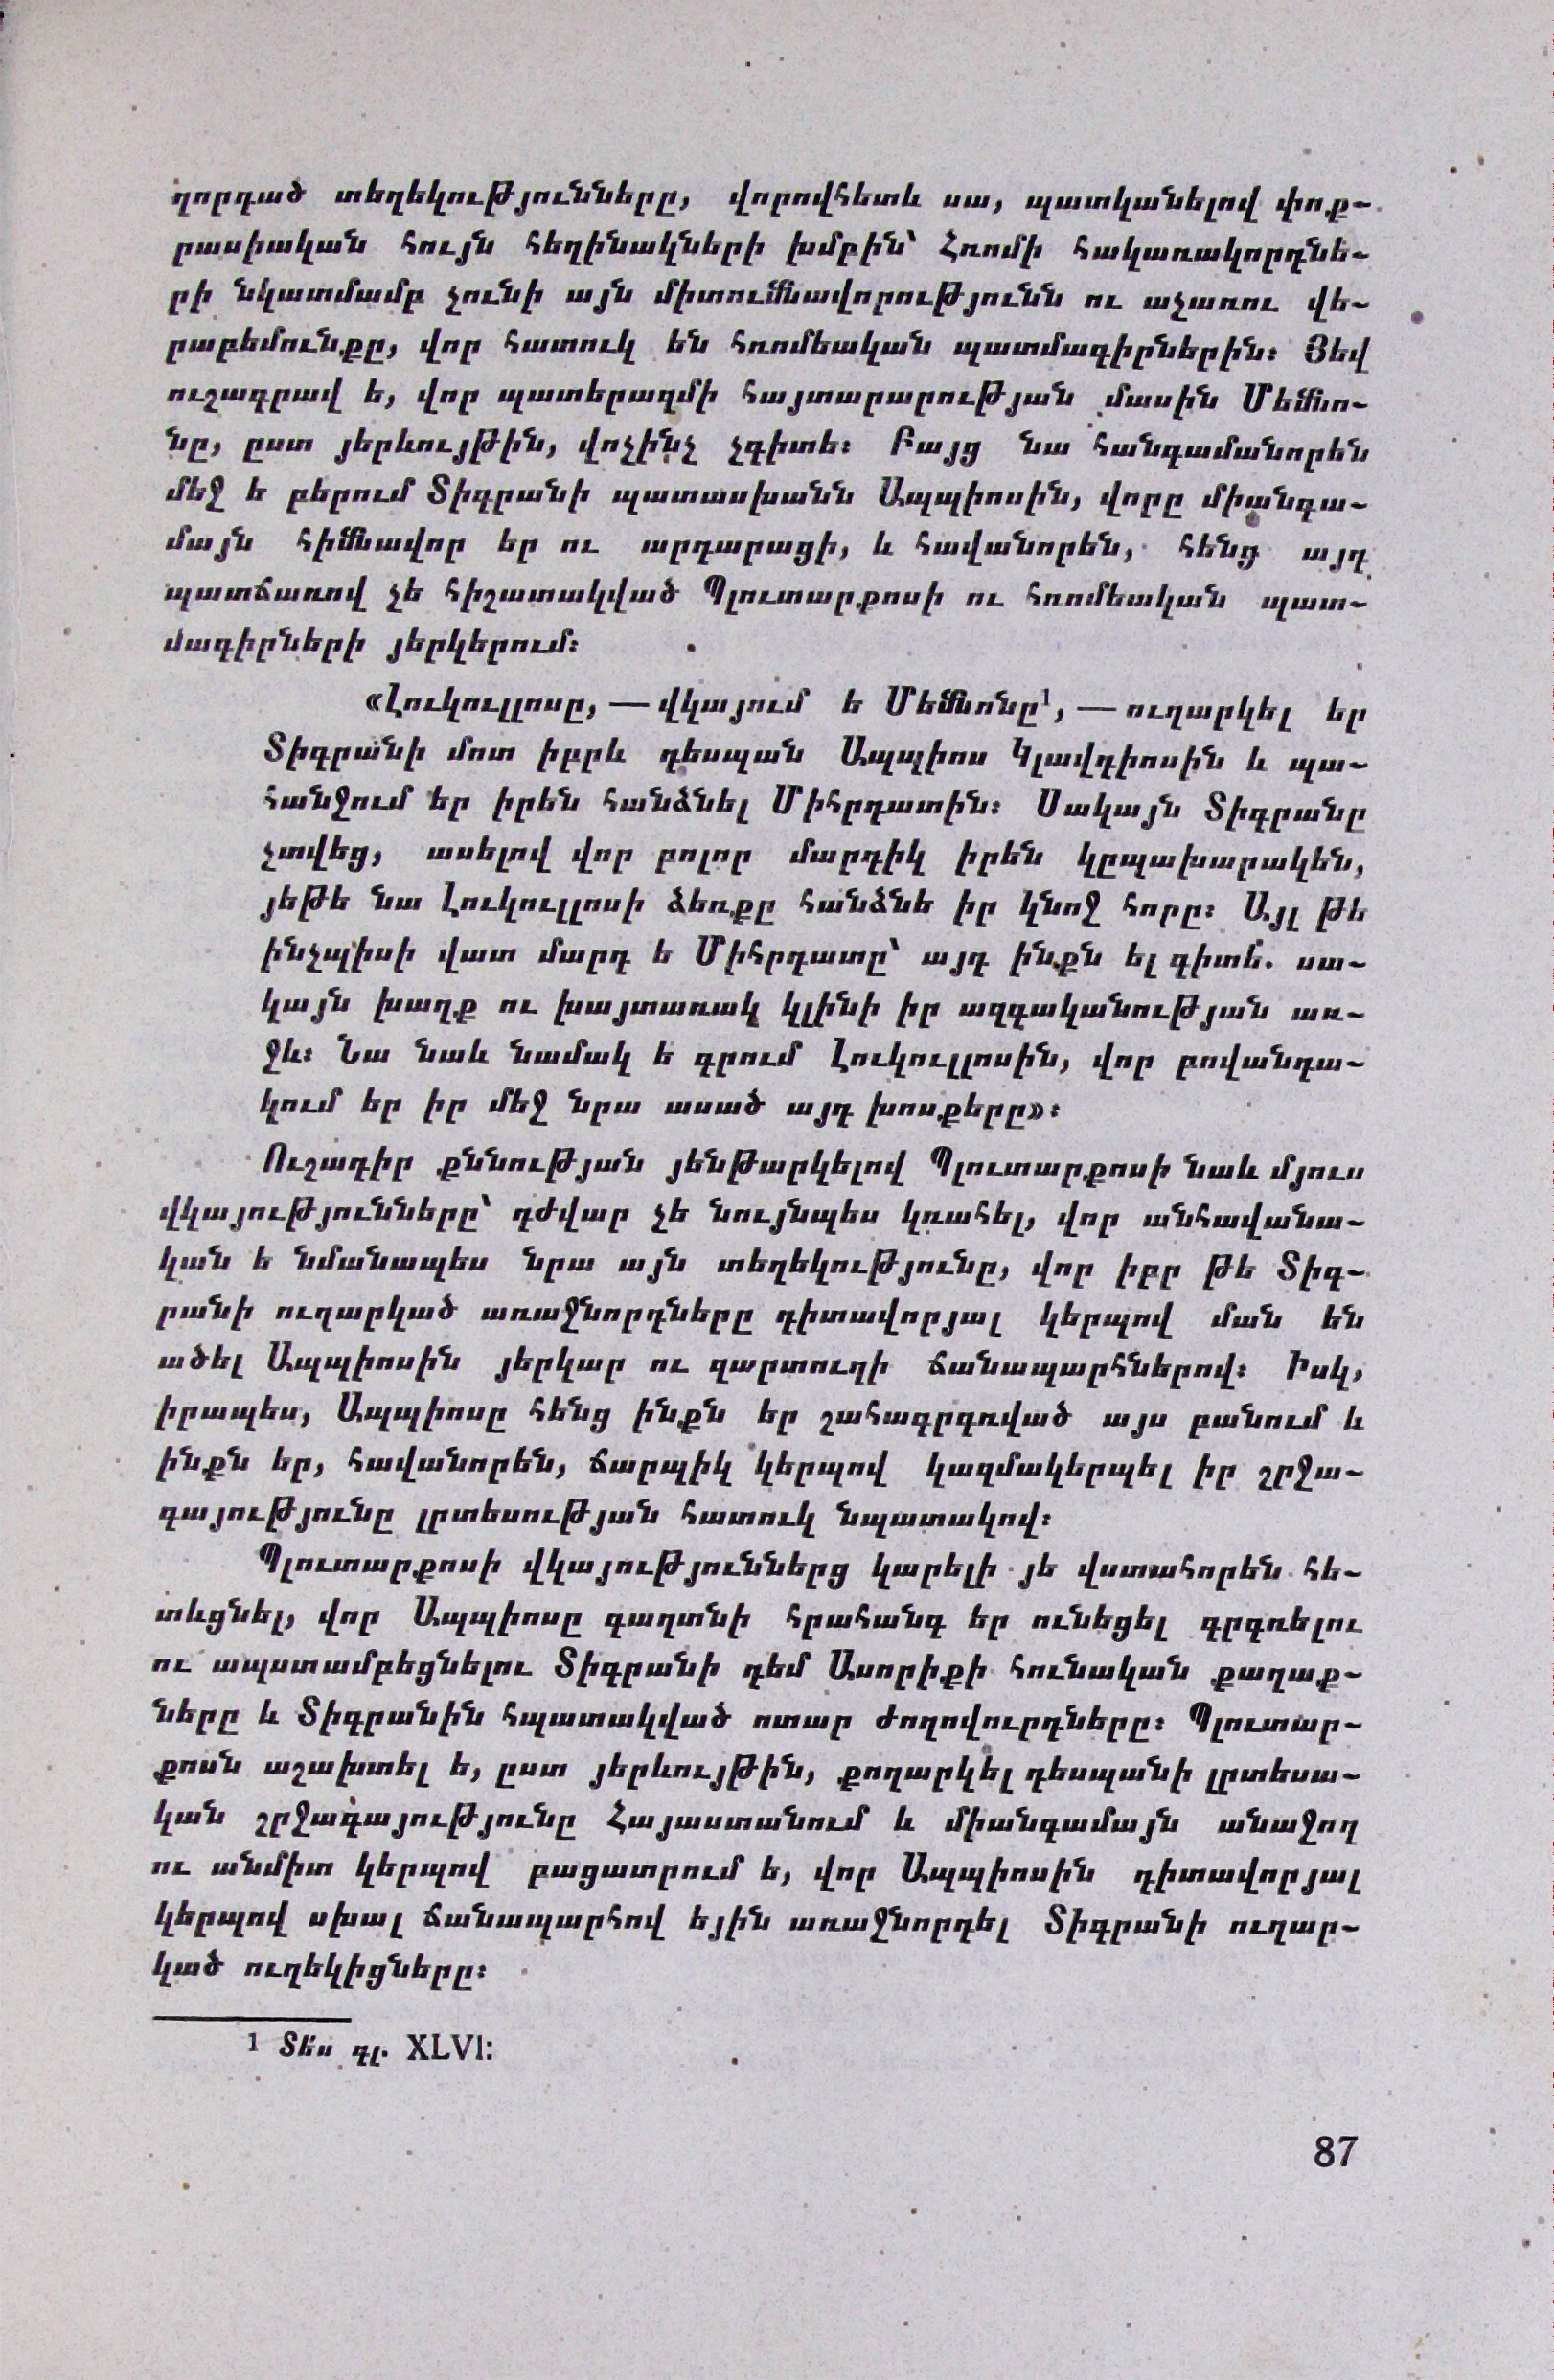 ղորդած տեղեկությունները, վորովհետև սա, պատկանելով փոք-
րասիական հույն հեղինակների խմբին՝ Հռոմի հակառակորդնե-
րի նկատմամբ չունի այն միտումնավորությունն ու աչառու վե-
րաբեմունքը, վոր հատուկ են հռոմեական պատմագիրներին։ Յեվ
ուշագրավ ե, վոր պատերազմի հայտարարության մասին Մեմնո-
նը, ըստ յերևույթին, վոչինչ չգիտե։ Բայց նա հանգամանորեն
մեջ ե բերում Տիգրանի պատասխանն Ապպիոսին, վորը միանգա-
մայն հիմնավոր եր ու արդարացի, և հավանորեն, հենց այդ
պատճառով չե հիշատակված Պլուտարքոսի ու հռոմեական պատ-
մագիրների յերկերում։
«Լուկուլլոսը, — վկայում ե Մեմնոնը¹, — ուղարկել եր
Տիգրանի մոտ իբրև դեսպան Ապպիոս Կլավդիոսին և պա-
հանջում եր իրեն հանձնել Միհրդատին։ Սակայն Տիգրանը
չտվեց, ասելով վոր բոլոր մարդիկ իրեն կըպախարակեն,
յեթե նա Լուկուլլոսի ձեռքը հանձնե իր կնոջ հորը։ Այլ թե
ինչպիսի վատ մարդ ե Միհրդատը՝ այդ ինքն ել գիտե. սա-
կայն խաղք ու խայտառակ կլինի իր ազգականության առ-
ջև։ Նա նաև նամակ ե գրում Լուկուլլոսին, վոր բովանդա-
կում եր իր մեջ նրա ասած այդ խոսքերը»։
Ուշադիր քննության յենթարկելով Պլուտարքոսի նաև մյուս
վկայությունները՝ դժվար չե նույնպես կռահել, վոր անհավանա-
կան ե նմանապես նրա այն տեղեկությունը, վոր իբր թե Տիգ-
րանի ուղարկած առաջնորդները դիտավորյալ կերպով ման են
ածել Ապպիոսին յերկար ու զարտուղի ճանապարհներով։ Իսկ,
իրապես, Ապպիոսը հենց ինքն եր շահագրգռված այս բանում և
ինքն եր, հավանորեն, ճարպիկ կերպով կազմակերպել իր շրջա-
գայությունը լրտեսության հատուկ նպատակով։
Պլուտարքոսի վկայություններց կարելի յե վստահորեն հե-
տևցնել, վոր Ապպիոսը գաղտնի հրահանգ եր ունեցել գրգռելու
ու ապստամբեցնելու Տիգրանի դեմ Ասորիքի հունական քաղաք-
ները և Տիգրանին հպատակված ոտար ժողովուրդները։ Պլուտար-
քոսն աշախտել ե, ըստ յերևույթին, քողարկել դեսպանի լրտեսա-
կան շրջագայությունը Հայաստանում և միանգամայն անաջող
ու անմիտ կերպով բացատրում ե, վոր Ապպիոսին դիտավորյալ
կերպով սխալ ճանապարհով եյին առաջնորդել Տիգրանի ուղար-
կած ուղեկիցները։
¹ Տե՛ս գլ. XLVI:
87